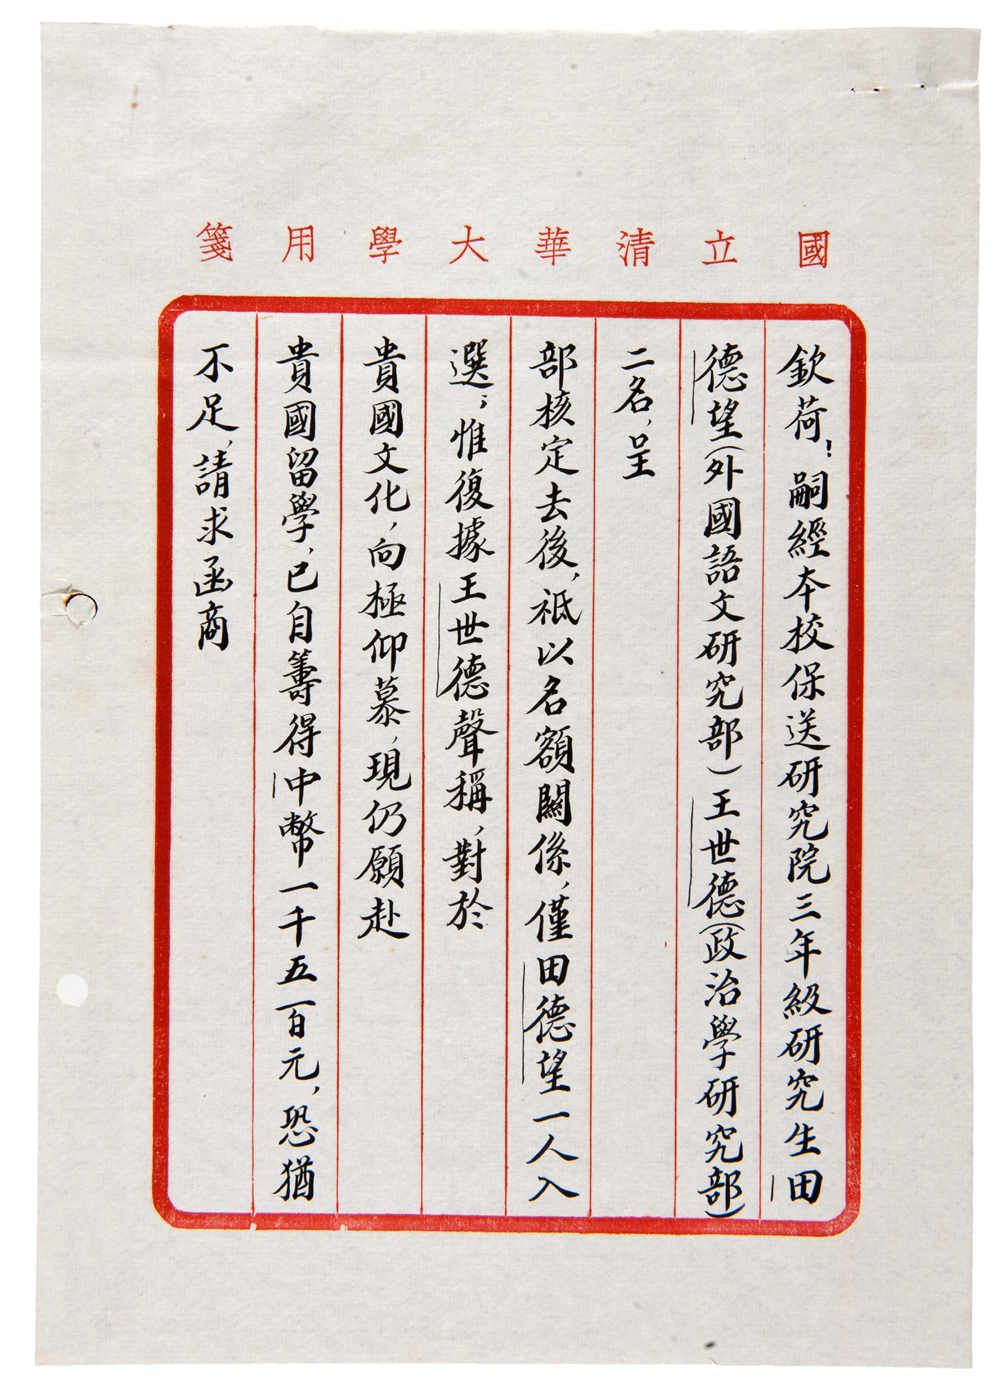 國立清華大學用箋
欽荷！嗣經本校保送研究院三年級研究生田
德望（外國語文研究部）王世德（政治學研究部）
二名，呈
部核定去後，祇以名額關係，僅田德望一人入
選；惟復據王世德聲稱，對於
貴國文化，向極仰慕，現仍願赴
貴國留學，已自籌得中幣一千五百元，恐猶
不足，請求函商